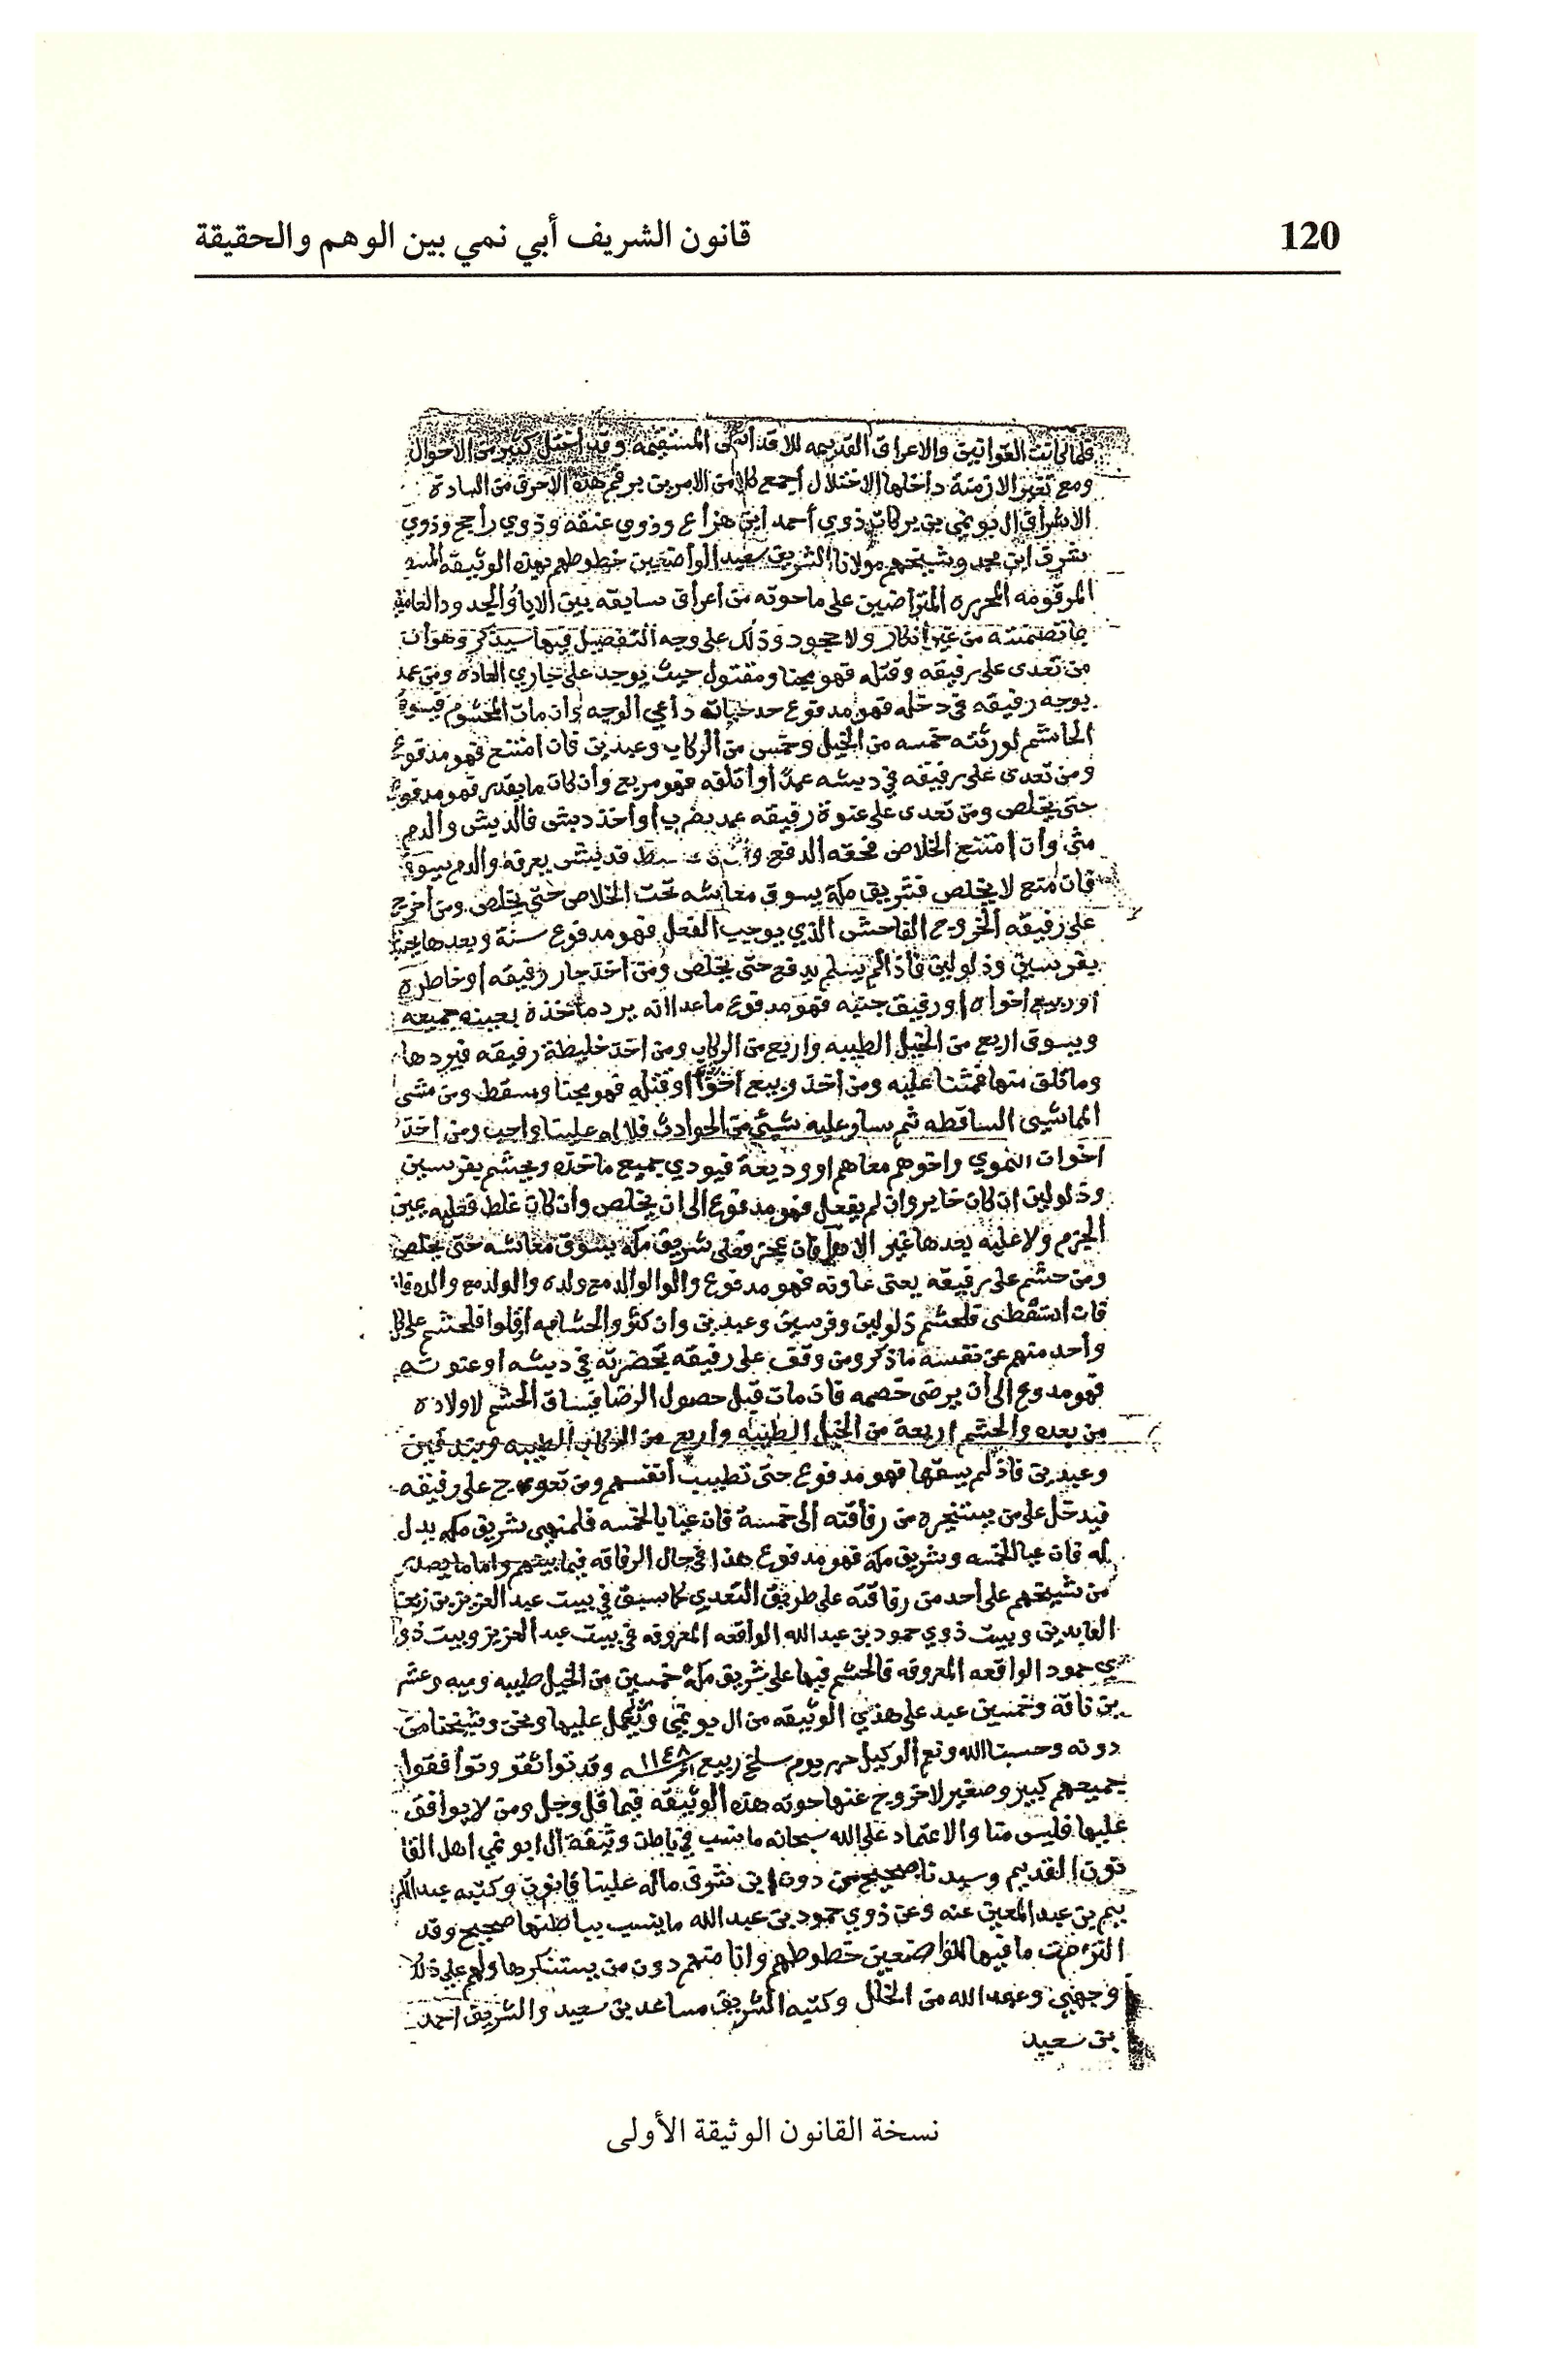 120
قانون الشريف أبي نمي بين الوهم والحقيقة
فلما كانت القوانين والاعراف القديمه المستقيمه وقد اختل كثير من الاحوال
ومع تغير الازمنة داخلها الاختلال أجمع من برقم هذه الاحرف من السادة
الاشراف ال بو نمي بن بركات ذوي أحمد ابن هزاع وذوي عنقه وذوي راجح وذوي
شرف ابن محمد وشيخهم مولانا الشريف سعيد الواضعين خطوطهم بهذه الوثيقه
المرقومه المحرره المتراضين على ما حوته من أعراف سابقه بين الابا والجدود
بما تضمنته من غير انكار ولا جحود وذلك على وجه التفصيل فيها سيذكر وهو أن
من تعدى على رفيقه وقتله فهو مجنا ومقتول حيث يوجد على جاري العاده ومن عمد
بوجه رفيقه في دخله فهو مدفوع حد حياته داعي الوجه وان مات المحشوم فيسوق
الحاشم لورثته خمسه من الخيل وخمس من الركاب وعبدين فان امتنع فهو مدفوع
ومن تعدى على رفيقه في دبشه عمدا أو أتلفه فهو مربع وان كان ما يقدر فهو مدفوع
حتى يخلص ومن تعدى على عنوة رفيقه عمد بضرب أو أخذ دبش فالدبش والدم
مثنى وان امتنع الخلاص فحقه الدفع قدبش يعرفه والدم يسوق
فان امتع لا يخلص فشريف مكة يسوق معاشه تحت الخلاص حتى يخلص ومن أخرج
على رفيقه الخروج الفاحش الذي يوجب الفعل فهو مدفوع سنة وبعدها
بفرسين وذلولين فاذا لم يسلم يدفع حتى يخلص ومن أخذ جار رفيقه أو خاطره
او ربيع اخواه او رفيق جنبه فهو مدفوع ما عدا انه يرد ما خذه بعينه جميعه
ويسوق اربع من الخيل الطيبه واربع من الركاب ومن اخذ خليطة رفيقه فيردها
وما تلف منها فمثنا عليه ومن أخذ ربيع أخوا أو قتله فهو مجنا ومسقط ومن مشى
الماشي الساقطه ثم سار عليه شيئ من الحوادث فلا له علينا واجب ومن اخذ
اخوات النموي واخوهم معاهم او وديعة فيودي جميع ما خذه ويحشم بفرسين
وذلولين ان كان خابر وان لم يفعل فهو مدفوع الى ان يخلص وان كان غلط فعليه عين
الجرم ولا عليه بعدها غير فان عجز فعلى شريف مكه يسوق معاشه حتى يخلص
ومن حشم على رفيقه يعنى عاونه فهو مدفوع والوالد مع ولده والولد مع والده
فان استقطى فلحشم ذلولين وفرسين وعبدين وان كثر والحشامه أقلوا فلحشم على كل
واحد منهم عن نفسه ما ذكر ومن وقف على رفيقه بحضرته في دبشه او عنوته
فهو مدفوع الى أن يرضى خصمه فان مات قبل حصول الرضا فيساق الحشم لاولاده
من بعده والحشم اربعة من الخيل الطيبه واربع من الركاب الطيبه
وعبدين فاذ لم يسقها فهو مدفوع حتى تطيب أنفسهم ومن تعوج على رفيقه
فيدخل على من يستخيره من رفاقته الى خمسة فان عيا بالخمسه فلمنهى شريف مكه يدل
له فان عيا للخمسه وشريف مكة فهو مدفوع هذا في حال الرفاقه فيما بينهم واما ما يصدر
من شيخهم على أحد من رفاقته على طريق التعدي كما سبق في بيت عبد العزيز بن زين
العابدين وبيت ذوي حمود بن عبدالله الواقعه المعروفه في بيت عبد العزيز وبيت ذو
ي حمود الواقعه المعروفه فالحشم فيها على شريف مكة خمسين من الخيل طيبه وميه وعشر
ين ناقة وخمسين عبد على هذي الوثيقه من ال بو نمي ويعمل عليها ونحن وشيخنا من
دونه وحسبنا الله ونعم الوكيل حرر يوم سلخ ربيع ١١٤٨ وقد تواثقو وتوافقوا
جميعهم كبير وصغير لا خروج عنها حوته هذه الوثيقه فيما قل وجل ومن لا يوافق
عليها فليس منا والاعتماد على الله سبحانه ما ينسب في باطن وثيقة ال ابو نمي اهل القا
نون القديم وسيدنا صحيح من دون ابن شرف ماله علينا قانون وكتبه عبدالكر
يم بن عبد المعين عنه وعن ذوي حمود بن عبدالله ما ينسب بباطنها صحيح وقد
التزمت ما فيها للواضعين خطوطهم وانا منهم دون من يستنكرها ولهم على ذلك
وجهي وعهد الله من الخلل وكتبه الشريف مساعد بن سعيد والشريف احمد
بن سعيد
نسخة القانون الوثيقة الأولى